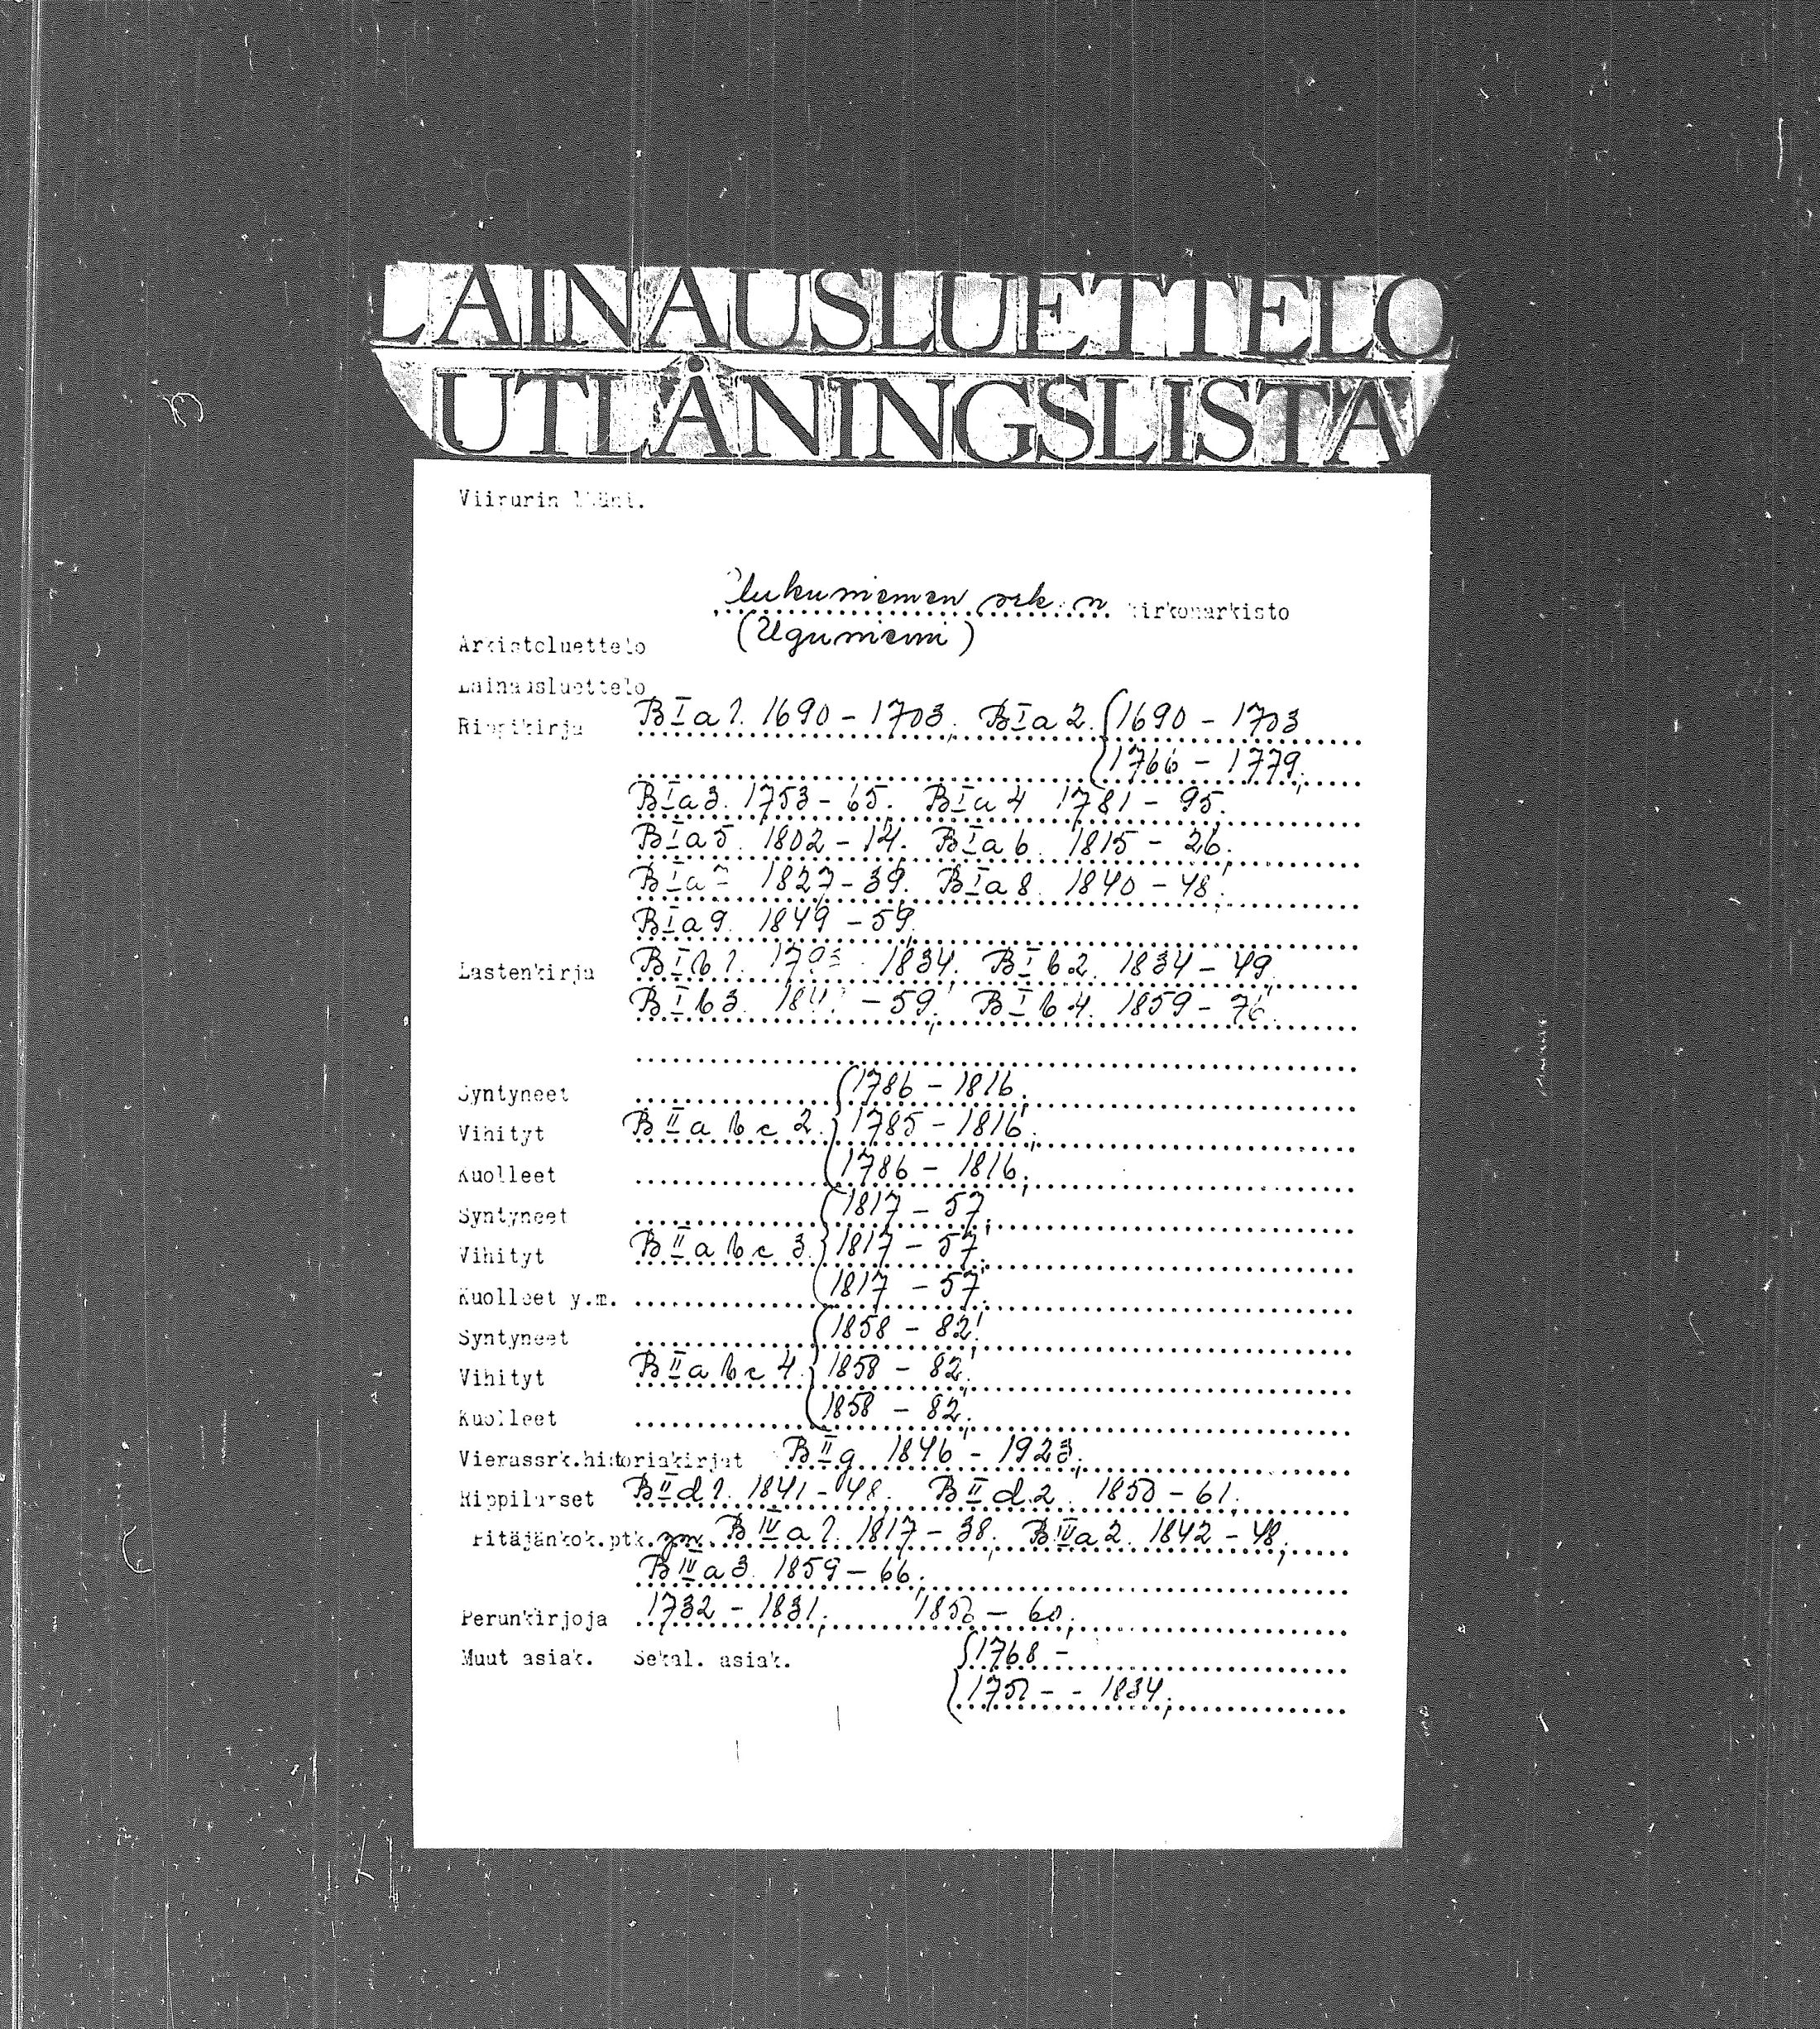 LAINAUSLUETTELO
UTLÅNINGSLISTA
Viipurin lääni.
Uukuniemen srk:n kirkonarkisto
(Uguniemi)
Arkistoluettelo
Lainausluettelo
Rippikirja B I a 1. 1690 - 1703; B I a 2. { 1690 - 1703
1766 - 1779;
B I a 3. 1753 - 65; B I a 4 1781 - 95;
B I a 5. 1802 - 14; B I a 6. 1815 - 26;
B I a 7 1827 - 39; B I a 8. 1840 - 48;
B I a 9. 1849 - 59;
Lastenkirja B I b 1. 1834; B I b 2. 1834 - 49;
B I b 3. - 59; B I b 4. 1859 - 76;
Syntyneet { 1786 - 1816;
Vihityt B II a b c 2. 1785 - 1816;
Kuolleet 1786 - 1816;
Syntyneet { 1817 - 57;
Vihityt B II a b c 3. 1817 - 57;
Kuolleet y.m. 1817 - 57;
Syntyneet { 1858 - 82;
Vihityt B II a b c 4. 1858 - 82;
Kuolleet 1858 - 82;
Vierassrk.historiakirjat B II g 1846 - 1923;
Rippilapset B II d 1. 1841 - 48; B II d 2. 1850 - 61;
Pitäjänkok.ptk. ym. B IV a 1. 1817 - 38; B IV a 2. 1842 - 48;
B IV a 3. 1859 - 66;
Perunkirjoja 1732 - 1831; 1850 - 60;
Muut asiak. Sekal. asiak. { 1768 -
1752 - - 1834;